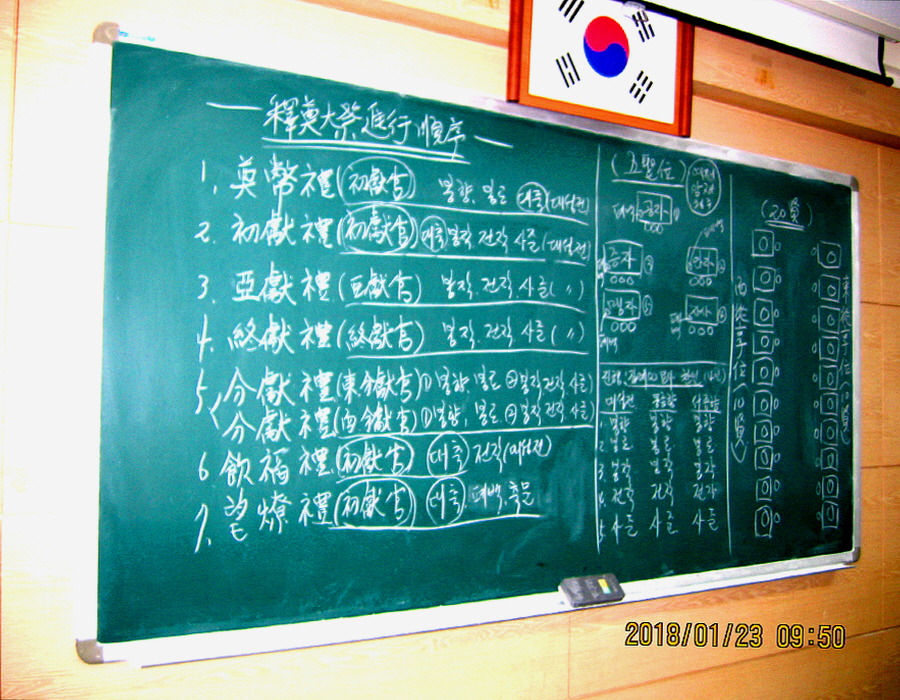 釋奠大祭進行順序
1. 奠幣禮(初獻官) 봉향, 봉로 대축(대성전)
2. 初獻禮(初獻官) 대축 봉작 전작 사준(대성전)
3. 亞獻禮(亞獻官) 봉작 전작 사준( 〃 )
4. 終獻禮(終獻官) 봉작, 전작 사준( 〃 )
5. 分獻禮(東分獻官) ①봉향, 봉로 ②봉작 전작 사준)
分獻禮(西分獻官) ①봉향, 봉로 ②봉작 전작 사준)
6. 飮福禮(初獻官) 대축 전작(대성전)
7. 望燎禮(初獻官) 대축 폐백, 축문
(五聖位)
공자
증자 안자
맹자 자사
대성전 동종향 서종향
1. 봉향 봉향 봉향
2. 봉로 봉로 봉로
3. 봉작 봉작 봉작
4. 전작 전작 전작
5. 사준 사준 사준
(20賢)
西從享位(10賢)
東從享位(10賢)
2018/01/23 09:50